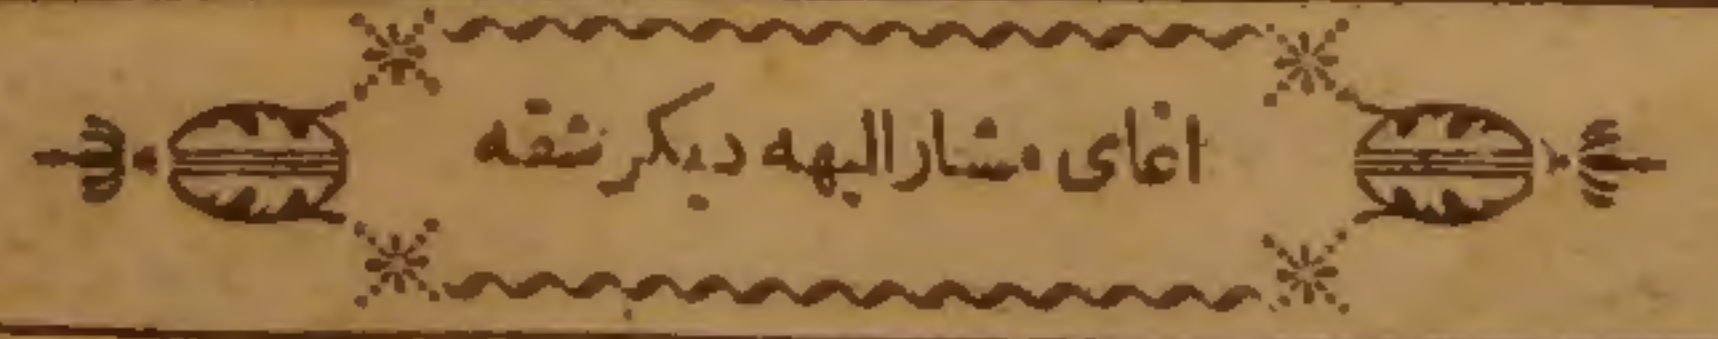 اغای مشار الیهه دیکر شقه